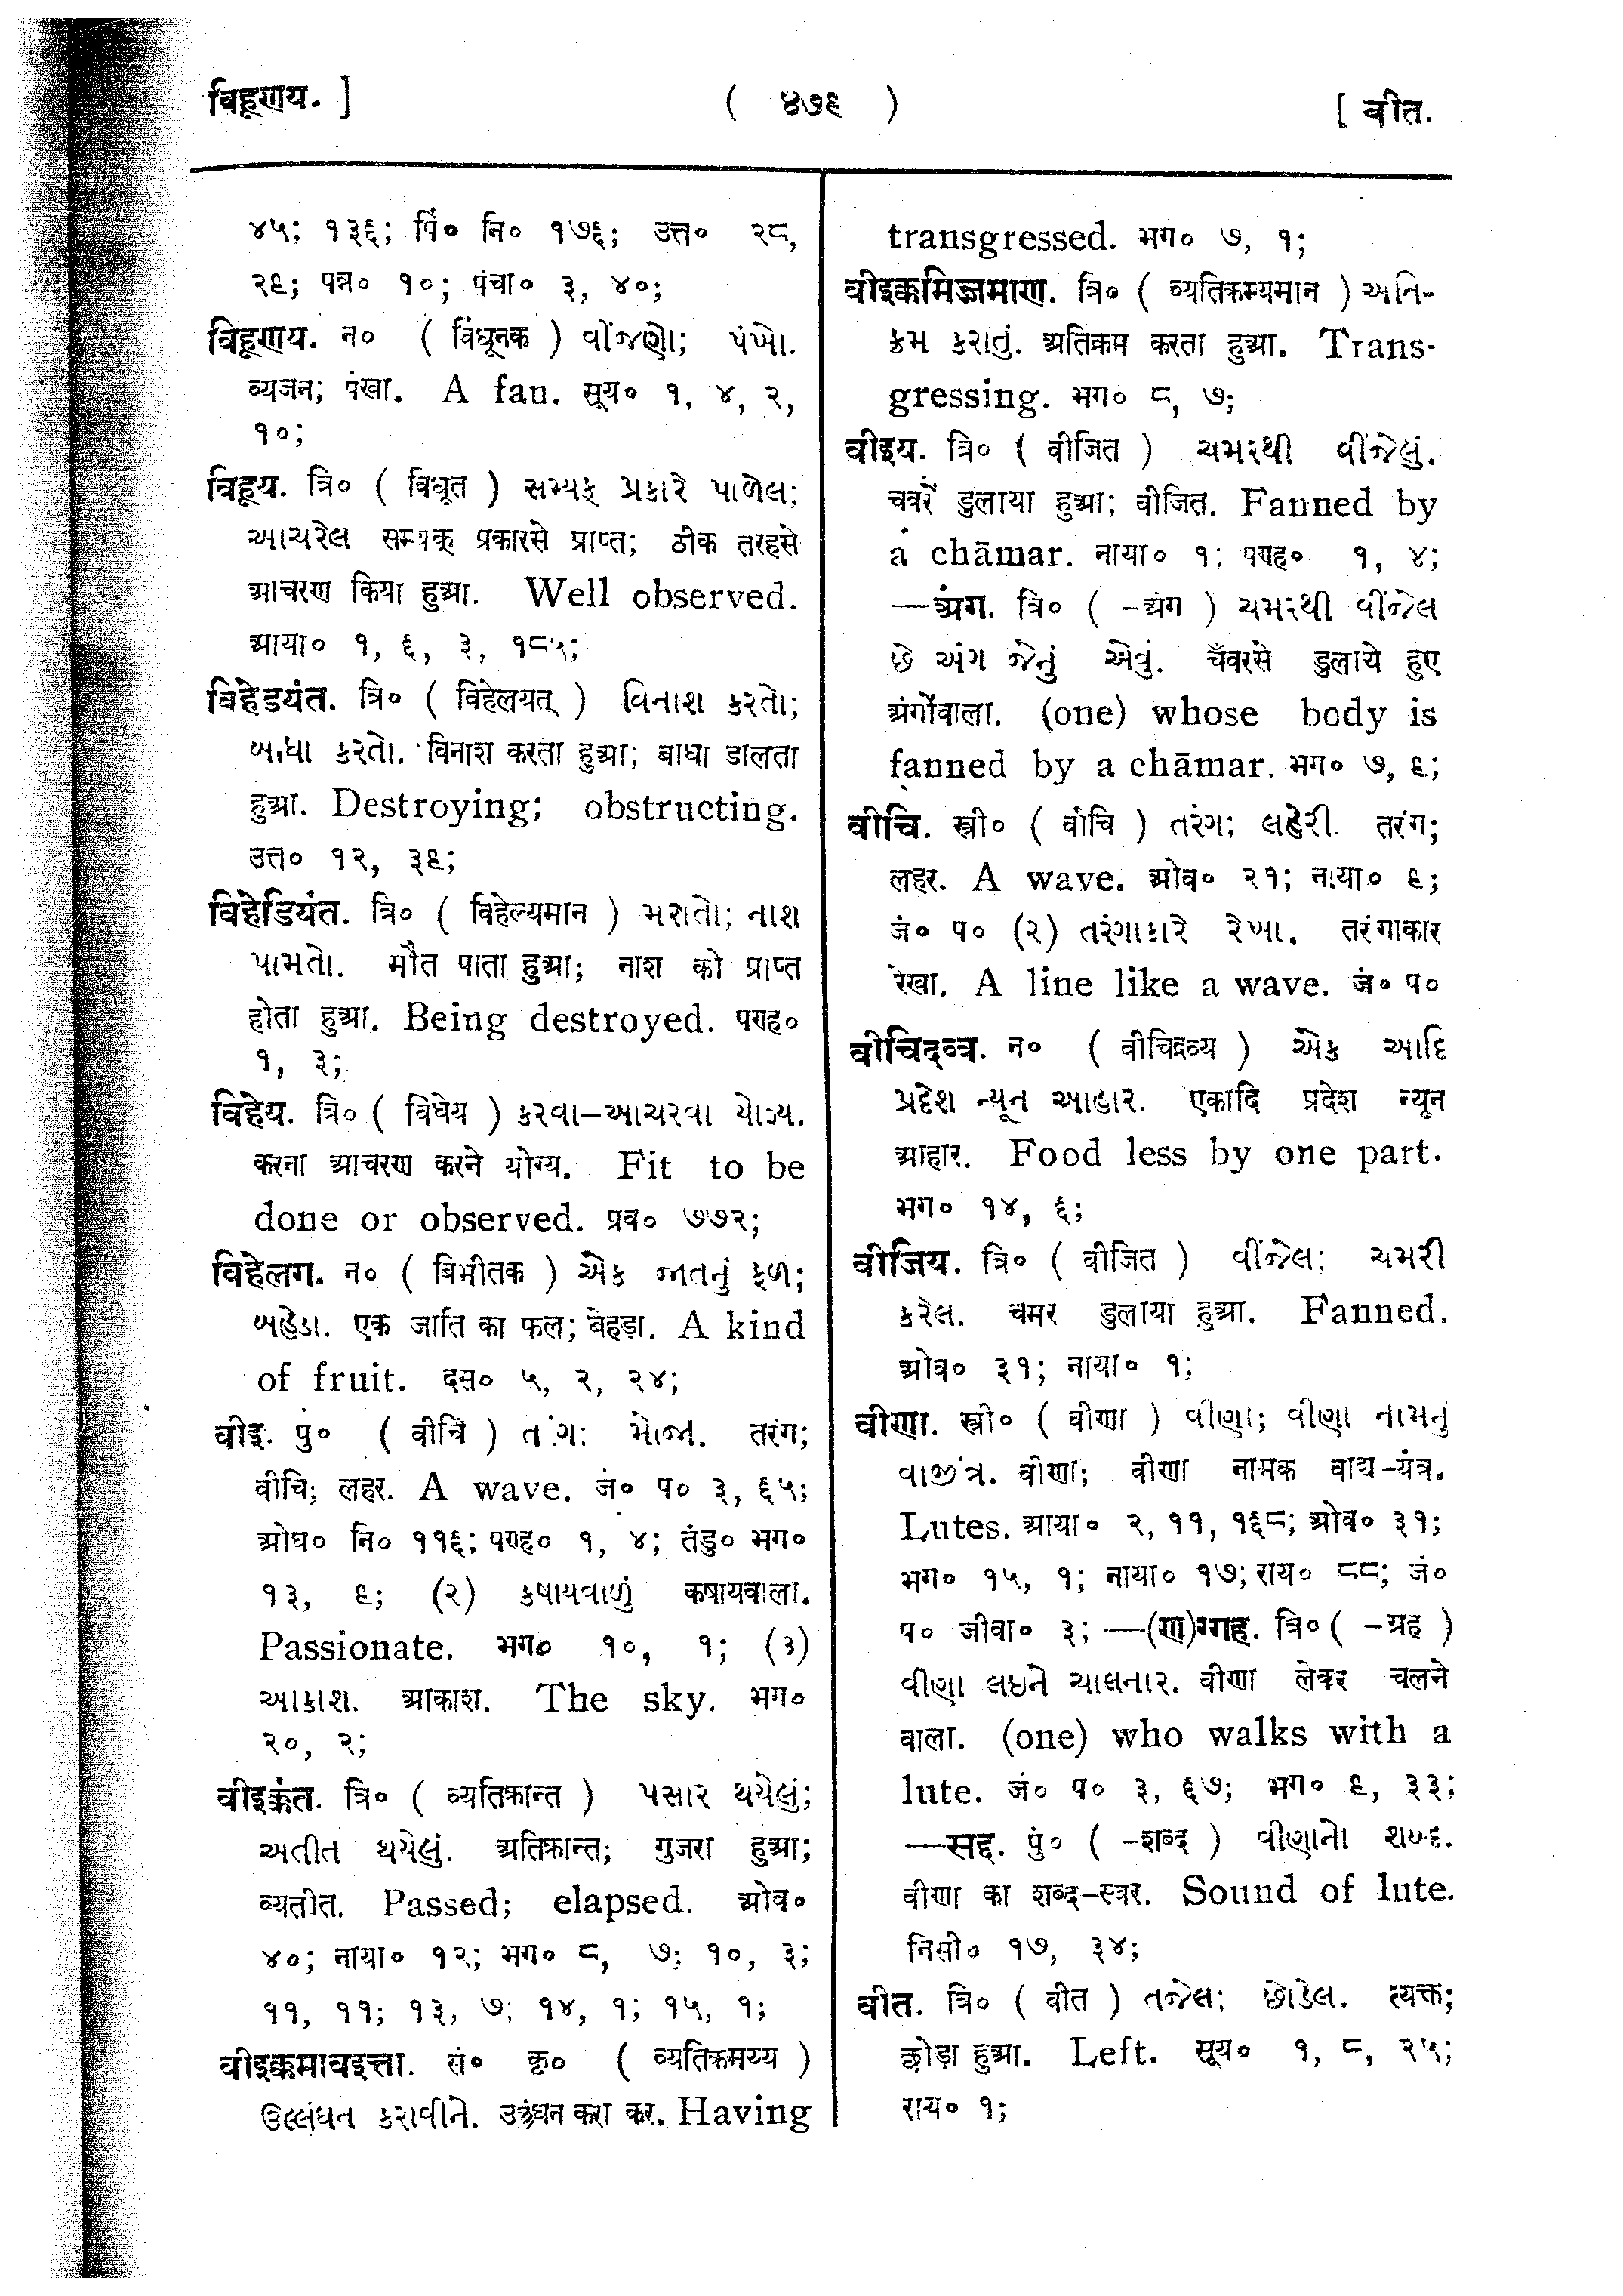 विहूणय. ]
( ४७९ )
[ वीत.
४५; १३६; पिं० नि० १७६; उत्त० २८,
२९; पन्न० १०; पंचा० ३, ४०;
विहूणय. न० ( विधूनक ) વીંજણો; પંખો.
व्यजन; पंखा. A fan. सूय० १, ४, २,
१०;
विहूय. त्रि० ( विधूत ) સમ્યક્ પ્રકારે પાળેલ;
આચરેલ सम्यक् प्रकारसे प्राप्त; ठीक तरहसे
आचरण किया हुआ. Well observed.
आया० १, ६, ३, १८५;
विहेडयंत. त्रि० ( विहेलयत् ) વિનાશ કરતો;
બાધા કરતો. विनाश करता हुआ; बाधा डालता
हुआ. Destroying; obstructing.
उत्त० १२, ३९;
विहेडियंत. त्रि० ( विहेल्यमान ) મરાતો; નાશ
પામતો. मौत पाता हुआ; नाश को प्राप्त
होता हुआ. Being destroyed. पण्ह०
१, ३;
विहेय. त्रि० ( विधेय ) કરવા–આચરવા યોગ્ય.
करना आचरण करने योग्य. Fit to be
done or observed. प्रव० ७७२;
विहेलग. न० ( बिभीतक ) એક જાતનું ફળ;
બહેડા. एक जाति का फल; बेहड़ा. A kind
of fruit. दस० ५, २, २४;
वीइ. पुं० ( वीचि ) તરંગ; મોજા. तरंग;
वीचि; लहर. A wave. जं० प० ३, ६५;
ओघ० नि० ११६; पण्ह० १, ४; तंडु० भग०
१३, ९; (२) કષાયવાળું कषायवाला.
Passionate. भग० १०, १; (३)
આકાશ. आकाश. The sky. भग०
२०, २;
वीइक्कंत. त्रि० ( व्यतिक्रान्त ) પસાર થયેલું;
અતીત થયેલું. अतिक्रान्त; गुजरा हुआ;
व्यतीत. Passed; elapsed. ओव०
४०; नाया० १२; भग० ८, ७; १०, ३;
११, ११; १३, ७; १४, १; १५, १;
वीइक्कमावइत्ता. सं० कृ० ( व्यतिक्रमय्य )
ઉલ્લંઘન કરાવીને. उल्लंघन करा कर. Having
transgressed. भग० ७, १;
वीइक्कमिज्जमाण. त्रि० ( व्यतिक्रम्यमान ) અતિ-
ક્રમ કરાતું. अतिक्रम करता हुआ. Trans-
gressing. भग० ८, ७;
वीइय. त्रि० ( वीजित ) ચમરથી વીંજેલું.
चवरें डुलाया हुआ; वीजित. Fanned by
a chāmar. नाया० १; पण्ह० १, ४;
—अंग. त्रि० ( –अंग ) ચમરથી વીંજેલ
છે અંગ જેનું એવું. चँवरसे डुलाये हुए
अंगोंवाला. (one) whose body is
fanned by a chāmar. भग० ७, ९;
वीचि. स्त्री० ( वीचि ) તરંગ; લહેરી. तरंग;
लहर. A wave. ओव० २१; नाया० ९;
जं० प० (२) તરંગાકારે રેખા. तरंगाकार
रेखा. A line like a wave. जं० प०
वीचिदव्व. न० ( वीचिद्रव्य ) એક આદિ
પ્રદેશ ન્યૂન આહાર. एकादि प्रदेश न्यून
आहार. Food less by one part.
भग० १४, ६;
वीजिय. त्रि० ( वीजित ) વીંજેલ; ચમરી
કરેલ. चमर डुलाया हुआ. Fanned.
ओव० ३१; नाया० १;
वीणा. स्त्री० ( वीणा ) વીણા; વીણા નામનું
વાજીંત્ર. वीणा; वीणा नामक वाद्य–यंत्र.
Lutes. आया० २, ११, १६८; ओव० ३१;
भग० १५, १; नाया० १७; राय० ८८; जं०
प० जीवा० ३; —(ण)ग्गह. त्रि० ( –ग्रह )
વીણા લઇને ચાલનાર. वीणा लेकर चलने
वाला. (one) who walks with a
lute. जं० प० ३, ६७; भग० ९, ३३;
—सद्द. पुं० ( –शब्द ) વીણાનો શબ્દ.
वीणा का शब्द–स्वर. Sound of lute.
निसी० १७, ३४;
वीत. त्रि० ( वीत ) તજેલ; છોડેલ. त्यक्त;
छोड़ा हुआ. Left. सूय० १, ८, २५;
राय० १;